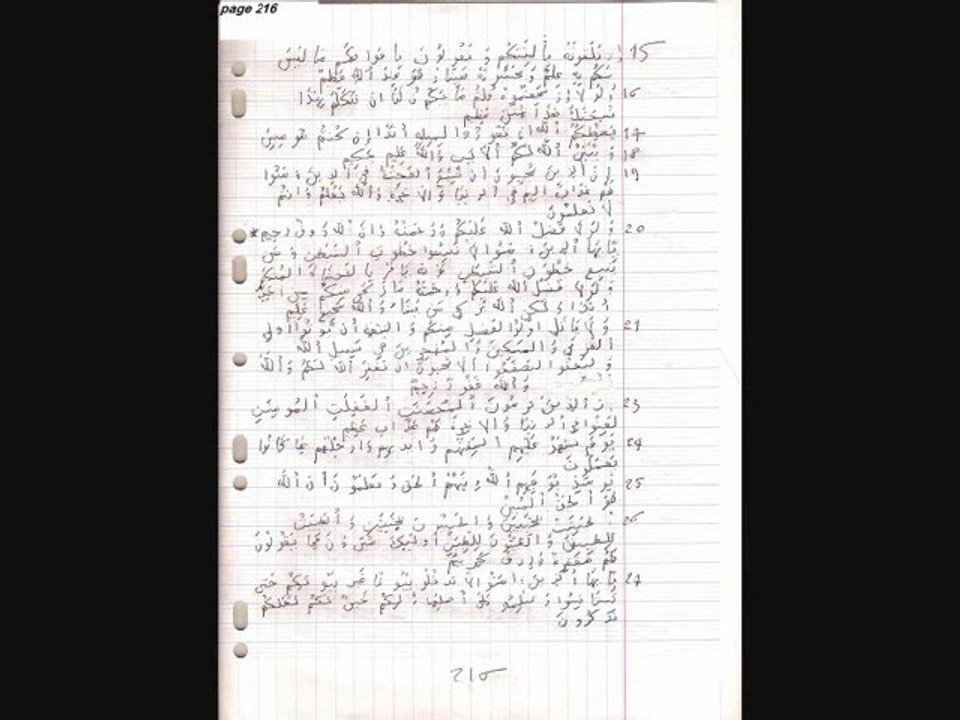 page 216
15 إذ تلقونه بألسنتكم وتقولون بأفواهكم ما ليس
لكم به علم وتحسبونه هينا وهو عند الله عظيم
16 ولولا إذ سمعتموه قلتم ما يكون لنا أن نتكلم بهذا
سبحنك هذا بهتن عظيم
17 يعظكم الله أن تعودوا لمثله أبدا إن كنتم مومنين
18 ويبين الله لكم الأيت والله عليم حكيم
19 إن الذين يحبون أن تشيع الفحشة في الذين ءامنوا
لهم عذاب اليم في الدنيا والاخرة والله يعلم وانتم
لا تعلمون
20 ولولا فضل الله عليكم ورحمته وأن الله رءوف رحيم *
يأيها الذين ءامنوا لا تتبعوا خطوت الشيطن ومن
يتبع خطوت الشيطن فإنه يأمر بالفحشاء والمنكر
ولولا فضل الله عليكم ورحمته ما زكى منكم من أحد
أبدا ولكن الله يزكي من يشاء والله سميع عليم
21 ولا يأتل أولوا الفضل منكم والسعة أن يوتوا أولي
القربى والمسكين والمهجرين في سبيل الله
وليعفوا وليصفحوا ألا تحبون أن يغفر الله لكم والله
والله غفور رحيم
23 إن الذين يرمون المحصنت الغفلت المومنت
لعنوا في الدنيا والاخرة ولهم عذاب عظيم
24 يوم تشهد عليهم ألسنتهم وأيديهم وأرجلهم بما كانوا
يعملون
25 يومئذ يوفيهم الله دينهم الحق ويعلمون أن الله
هو الحق المبين
26 الخبيثت للخبيثين والخبيثون للخبيثت والطيبت
للطيبين والطيبون للطيبت أولئك مبرءون مما يقولون
لهم مغفرة ورزق كريم
27 يأيها الذين ءامنوا لا تدخلوا بيوتا غير بيوتكم حتى
تستأنسوا وتسلموا على أهلها ذلكم خير لكم لعلكم
تذكرون
216